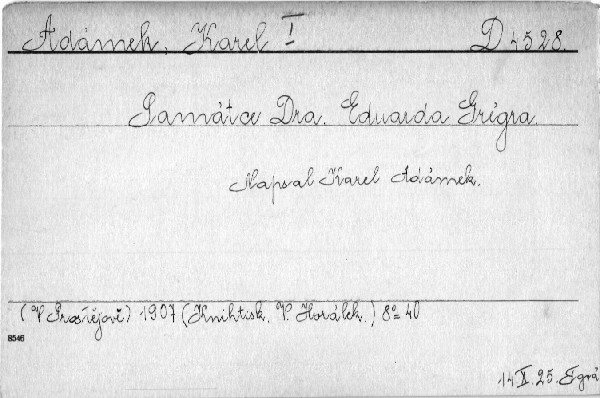 Adámek, Karel I D 4528.
Památce Dra. Eduarda Grégra.
Napsal Karel Adámek.
(V Prostějově) 1907 (Knihtisk. V. Horálek.) 8º 40
8546
14 II. 25.